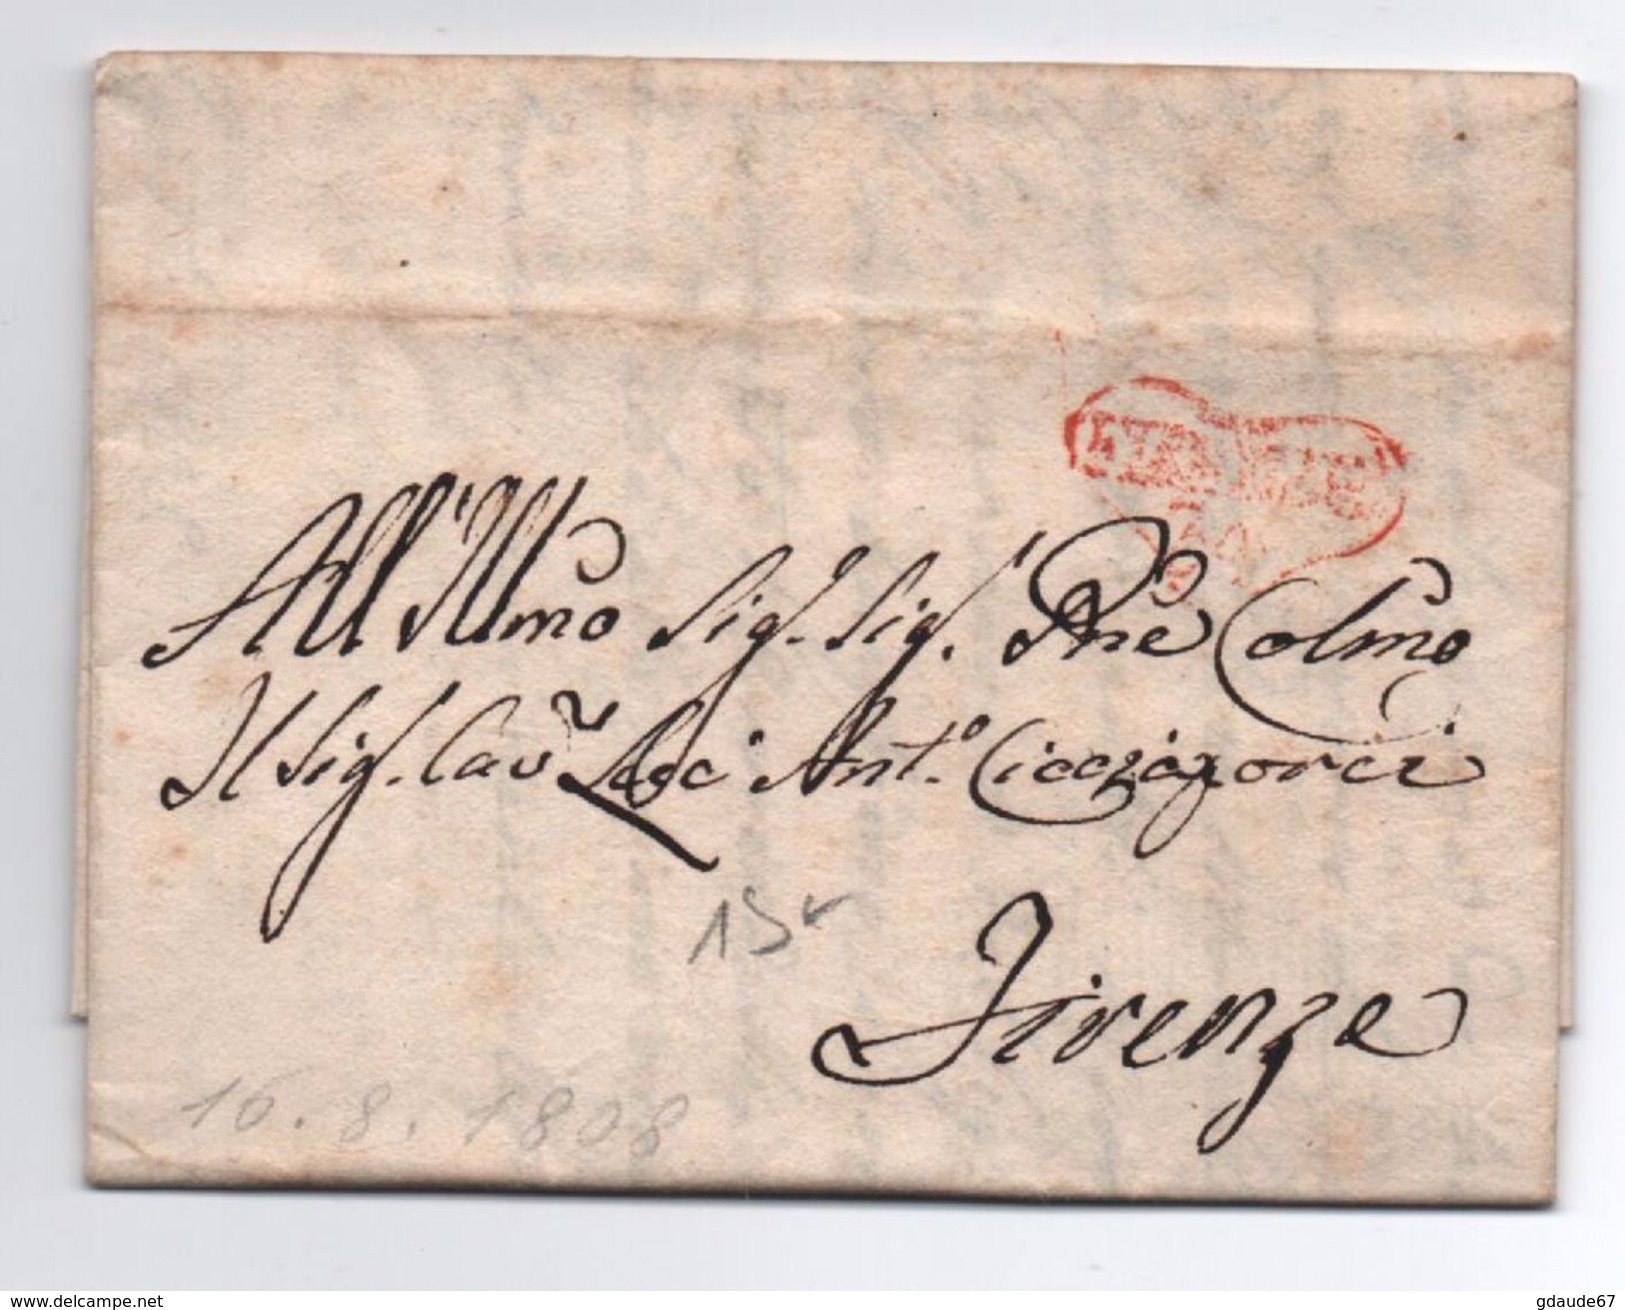 All'Illmo Sig. Sig. Pne Colmo
Il Sig. Cav Ant.o
15
Firenze
16.8.1808
www.delcampe.net
gdaude67